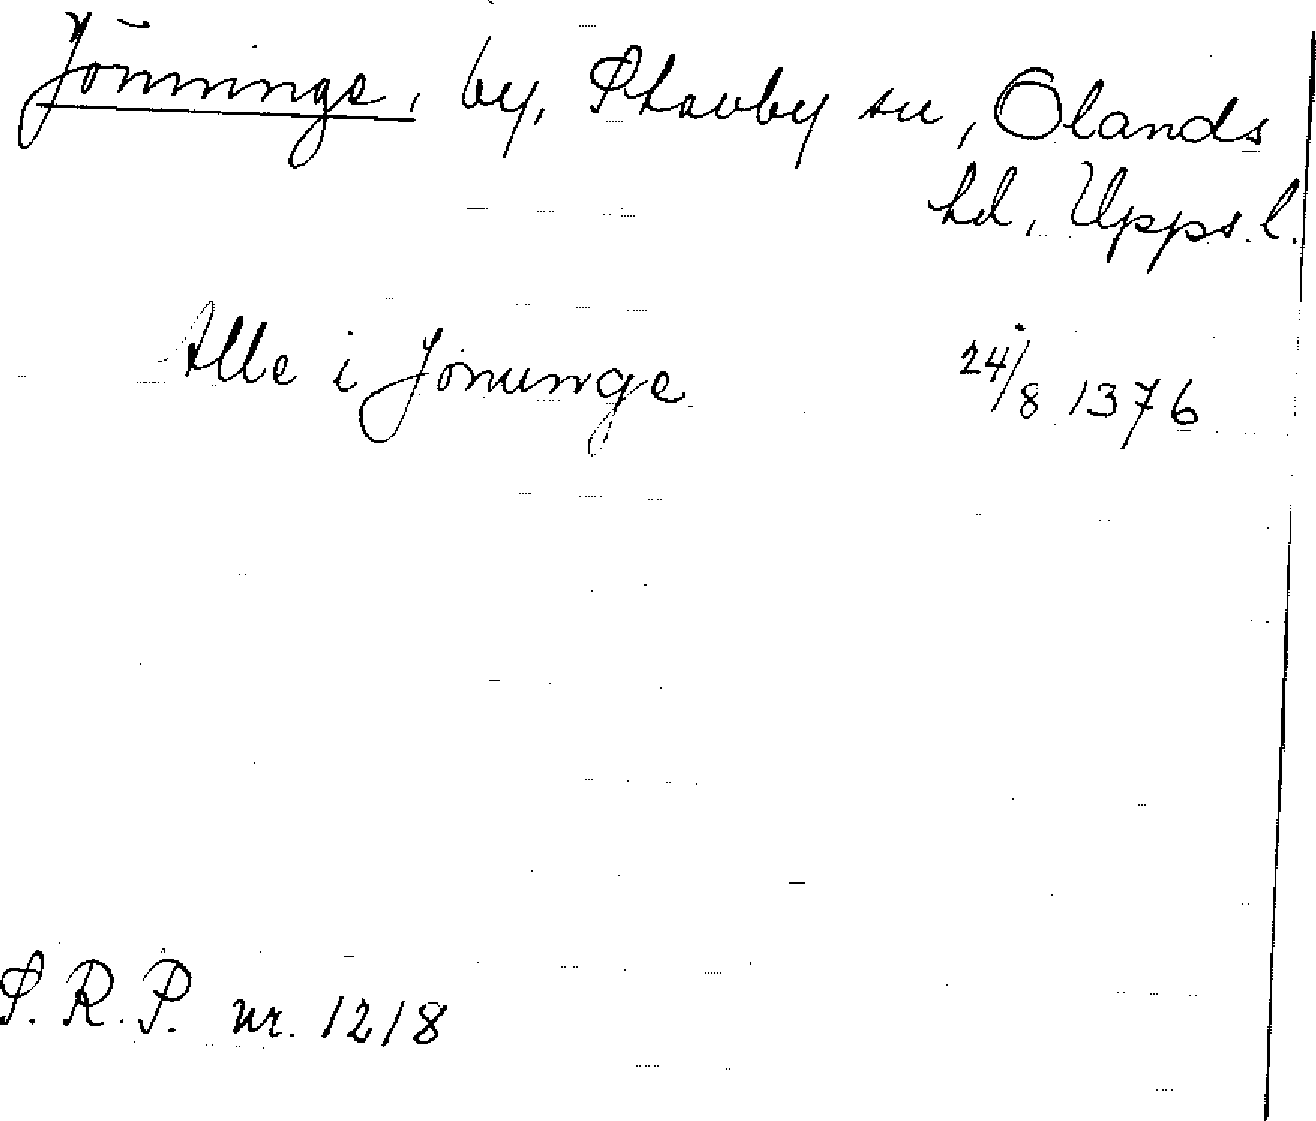 Jönninge, by, Skävby sn, Ölands
hd, Upps. l.
Alle i Jonunge 24/8 1376
S.R.P. nr. 1218